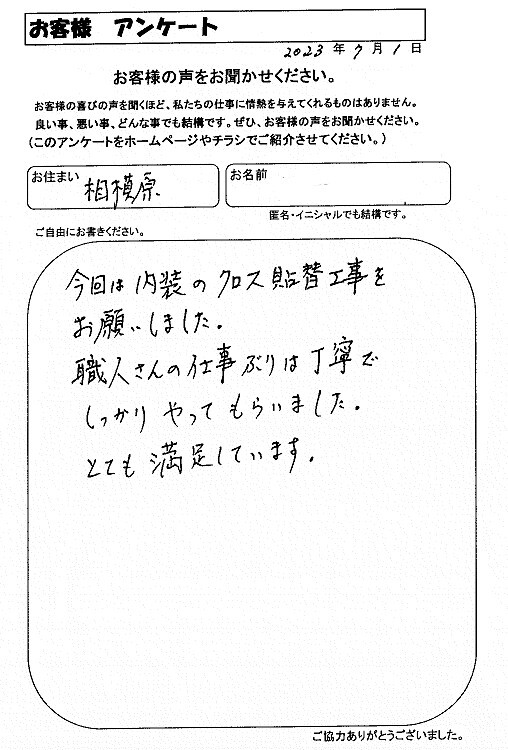 お客様 アンケート
2023 年 7 月 1 日
お客様の声をお聞かせください。
お客様の喜びの声を聞くほど、私たちの仕事に情熱を与えてくれるものはありません。
良い事、悪い事、どんな事でも結構です。ぜひ、お客様の声をお聞かせください。
(このアンケートをホームページやチラシでご紹介させてください。)
お住まい 相模原
お名前
匿名・イニシャルでも結構です。
ご自由にお書きください。
今回は内装のクロス貼替工事を
お願いしました。
職人さんの仕事ぶりは丁寧で
しっかりやってもらいました。
とても満足しています。
ご協力ありがとうございました。